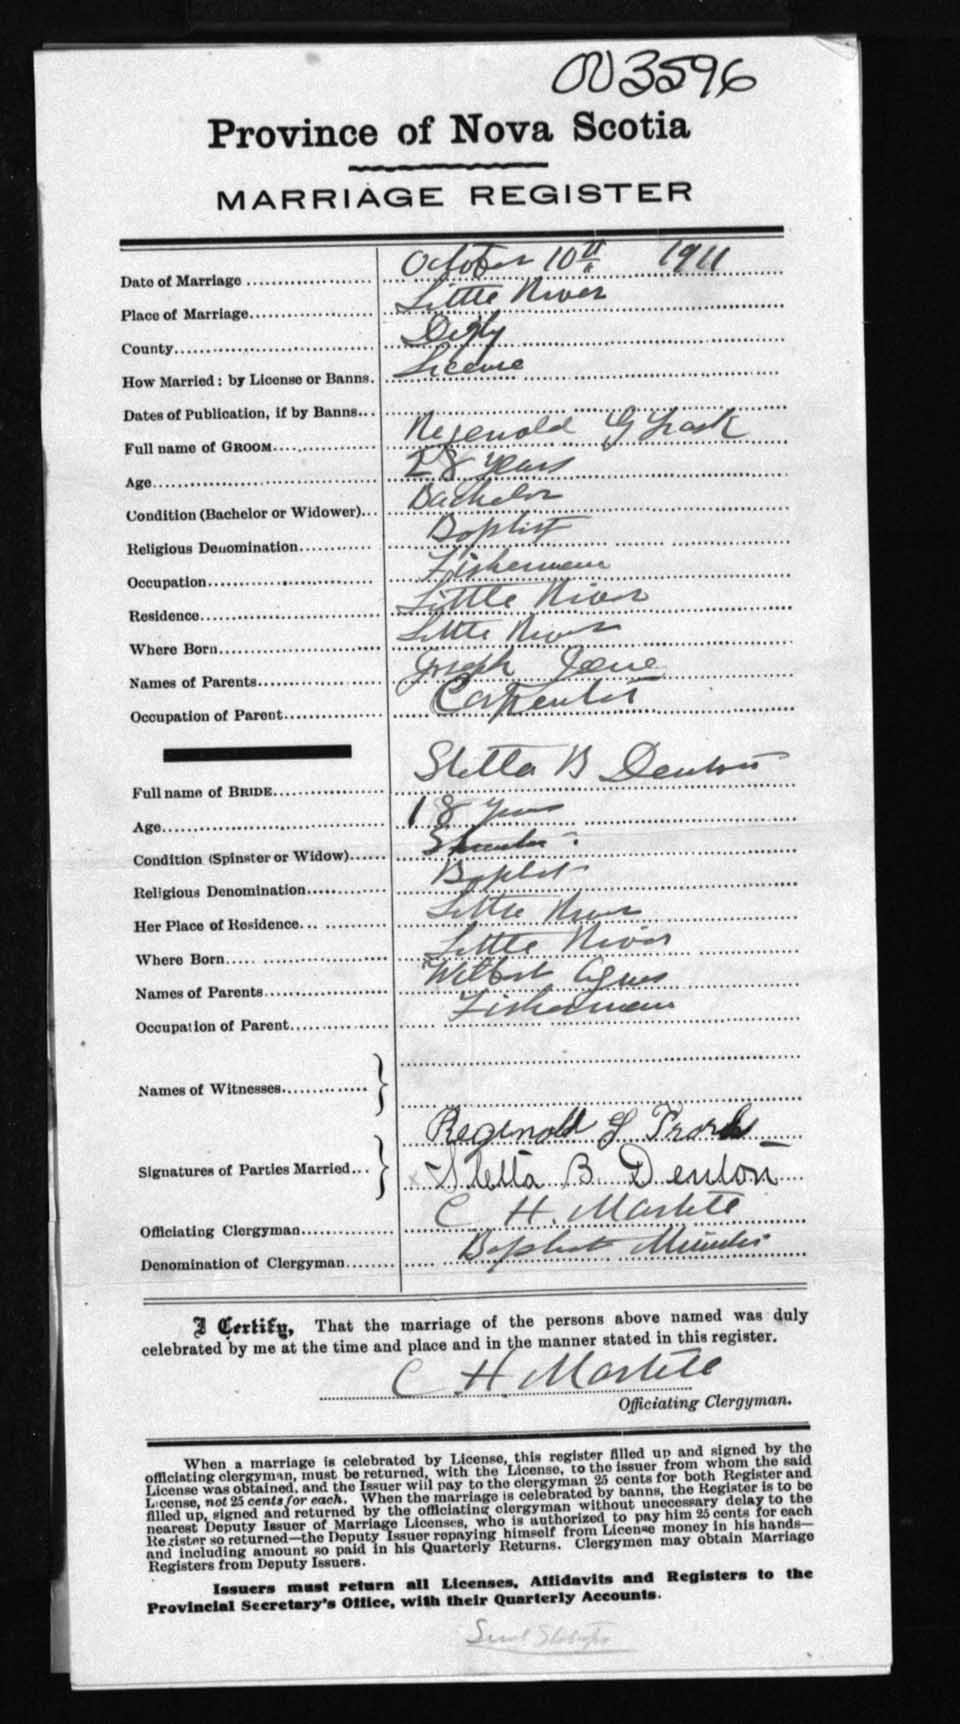 003596
Province of Nova Scotia
MARRIAGE REGISTER
Date of Marriage October 10th 1911
Place of Marriage Little River
County Digby
How Married: by License or Banns. License
Dates of Publication, if by Banns
Full name of GROOM Regenold G Trask
Age 28 years
Condition (Bachelor or Widower) Bachelor
Religious Denomination Baptist
Occupation Fisherman
Residence Little River
Where Born Little River
Names of Parents Joseph Jane
Occupation of Parent Carpenter
Full name of BRIDE Stella B Denton
Age 18 years
Condition (Spinster or Widow) Spinster
Religious Denomination Baptist
Her Place of Residence Little River
Where Born Little River
Names of Parents Wilbert Agnes
Occupation of Parent Fisherman
Names of Witnesses
Reginold G Trask
Signatures of Parties Married
Stella B. Denton
Officiating Clergyman C H. Martell
Denomination of Clergyman Baptist Minister
I Certify, That the marriage of the persons above named was duly
celebrated by me at the time and place and in the manner stated in this register.
C H. Martell
Officiating Clergyman.
When a marriage is celebrated by License, this register filled up and signed by the
officiating clergyman, must be returned, with the License, to the issuer from whom the said
License was obtained, and the Issuer will pay to the clergyman 25 cents for both Register and
License, not 25 cents for each. When the marriage is celebrated by banns, the Register is to be
filled up, signed and returned by the officiating clergyman without unnecessary delay to the
nearest Deputy Issuer of Marriage Licenses, who is authorized to pay him 25 cents for each
Register so returned—the Deputy Issuer repaying himself from License money in his hands—
and including amount so paid in his Quarterly Returns. Clergymen may obtain Marriage
Registers from Deputy Issuers.
Issuers must return all Licenses, Affidavits and Registers to the
Provincial Secretary's Office, with their Quarterly Accounts.